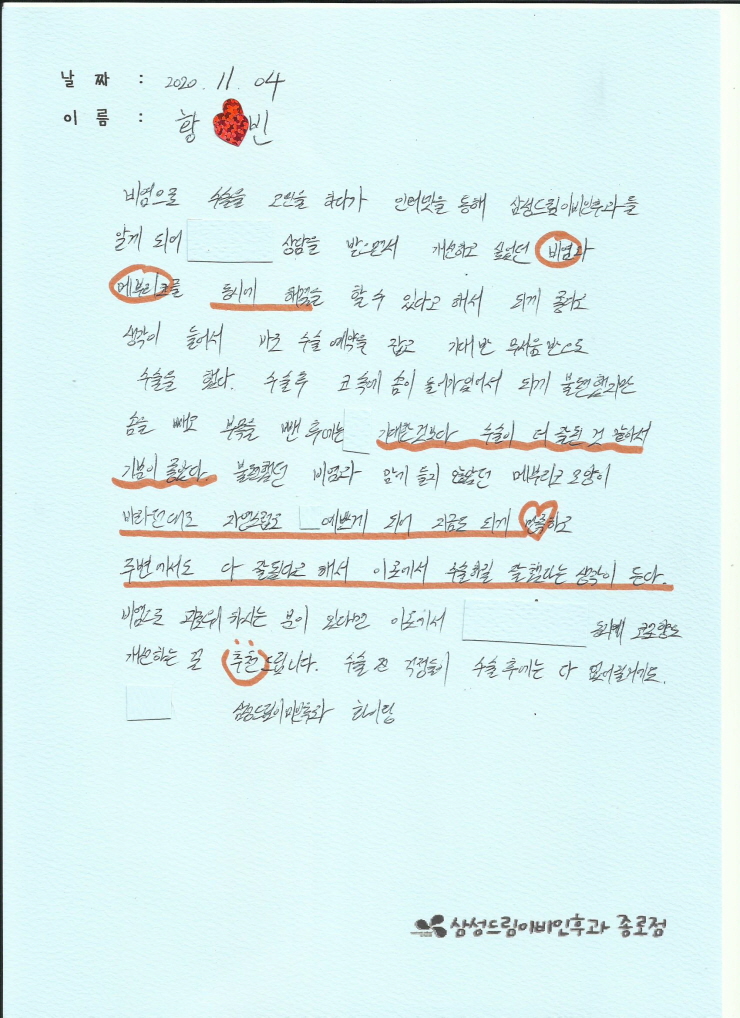 날 짜 : 2020. 11. 04
이 름 : 황 빈
비염으로 수술을 고민을 하다가 인터넷을 통해 삼성드림이비인후과를
알게 되어 상담을 받으면서 개선하고 싶었던 비염과
메부리코를 동시에 해결을 할 수 있다고 해서 되게 좋다고
생각이 들어서 바로 수술 예약을 잡고 기대 반 무서움 반으로
수술을 했다. 수술후 코 속에 솜이 들어가있어서 되게 불편했지만
솜을 빼고 부목을 뺀 후에는 기대한 것보다 수술이 더 잘된 것 같아서
기분이 좋았다. 불편했던 비염과 맘에 들지 않았던 메부리코 모양이
바라던대로 자연스럽고 예쁘게 되어 지금도 되게 만족하고
주변에서도 다 잘됐다고 해서 이곳에서 수술하길 잘했다는 생각이 든다.
비염으로 괴로워 하시는 분이 있다면 이곳에서 코모양도
개선하는 걸 추천드립니다. 수술 전 걱정들이 수술 후에는 다 없어질거예요.
삼성드림이비인후과 화이팅
삼성드림이비인후과 종로점